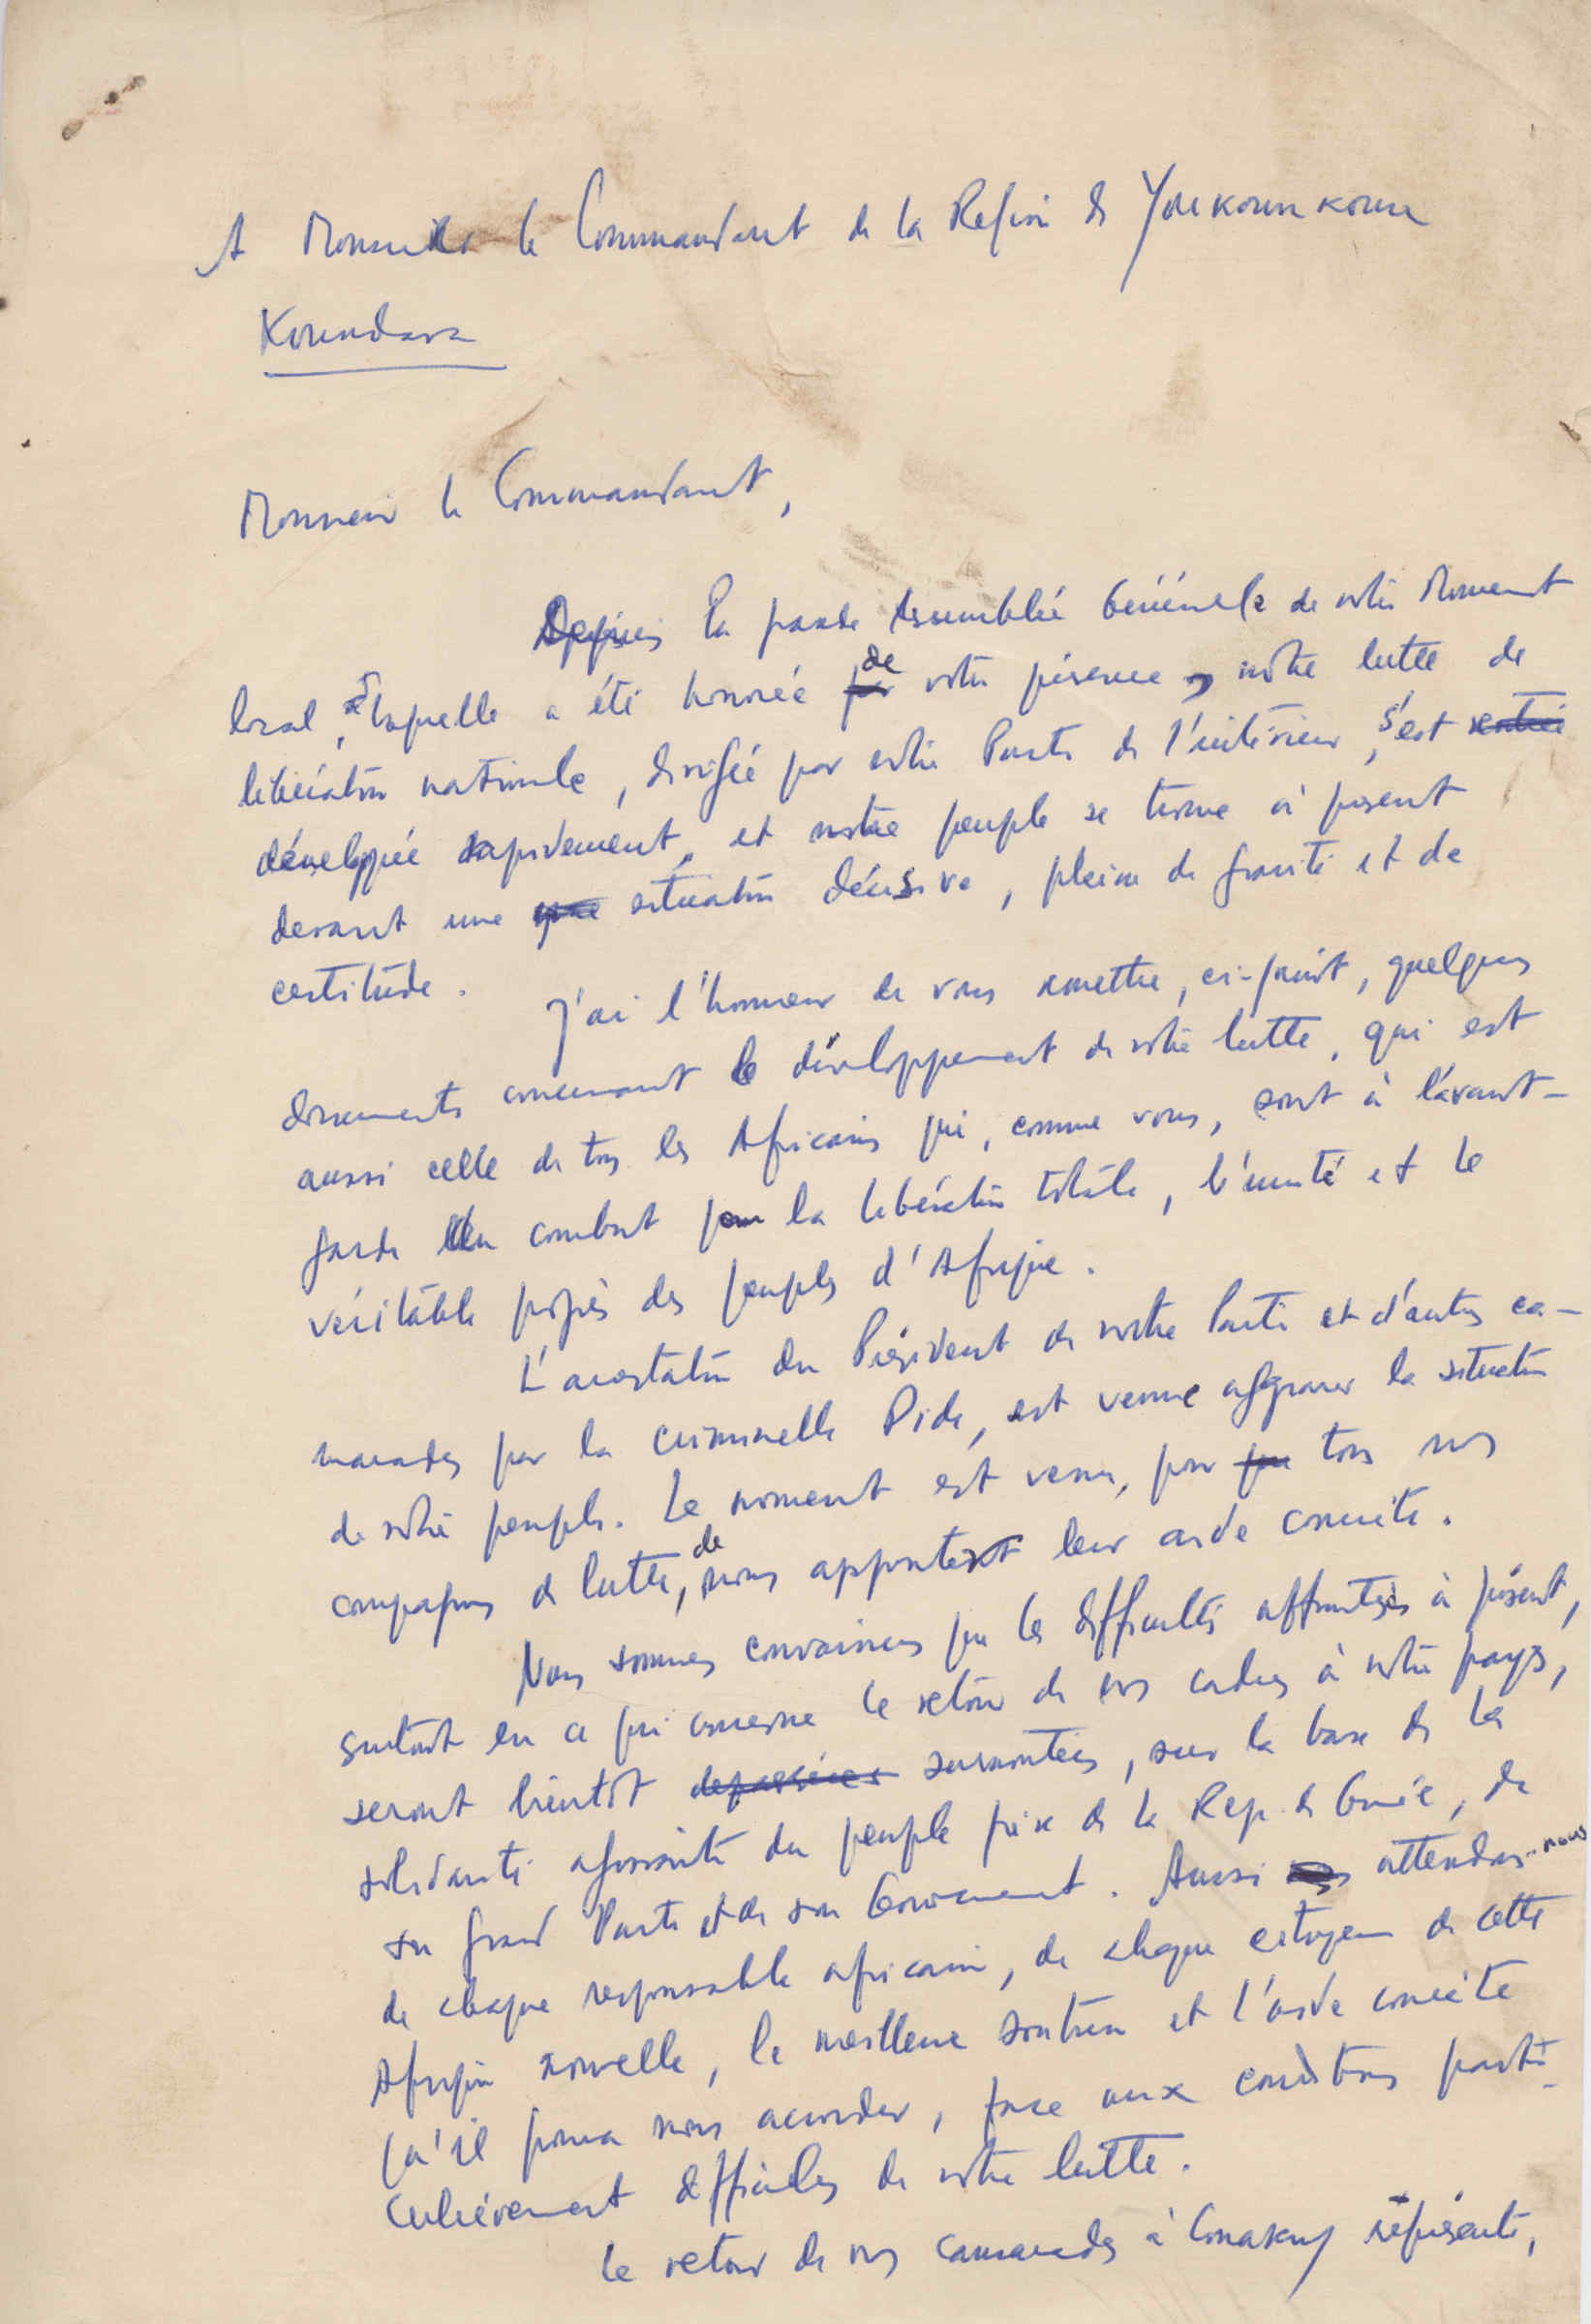 A Monsieur le Commandant de la Région de Youkounkoun
Koundara
Monsieur le Commandant,
Depuis la grande Assemblée Générale de notre Mouvement
local, laquelle a été honorée par de votre présence, notre lutte de
libération nationale, dirigée par notre Parti de l'intérieur, s'est
développée rapidement, et notre peuple se trouve à présent
devant une situation décisive, pleine de gravité et de
certitude.
J'ai l'honneur de vous remettre, ci-joint, quelques
documents concernant le développement de notre lutte, qui est
aussi celle de tous les Africains qui, comme vous, sont à l'avant-
garde du combat pour la libération totale, l'unité et le
véritable progrès des peuples d'Afrique.
L'arrestation du Président de notre Parti et d'autres ca-
marades par la criminelle Pide, est venue aggraver la situation
de notre peuple. Le moment est venu, pour que tous nos
compagnons de lutte, de nous apporter leur aide concrète.
Nous sommes convaincus que les difficultés affrontées à présent,
surtout en ce qui concerne le retour de nos cadres à notre pays,
seront bientôt depassées surmontées, sur la base de la
solidarité agissante du peuple frère de la Rep. de Guinée, de
son grand Parti et de son Gouvernement. Aussi attendons-nous
de chaque responsable africain, de chaque citoyen de cette
Afrique nouvelle, le meilleur soutien et l'aide concrète
qu'il pourra nous accorder, face aux conditions parti-
culièrement difficiles de notre lutte.
Le retour de nos camarades à Conakry représente,